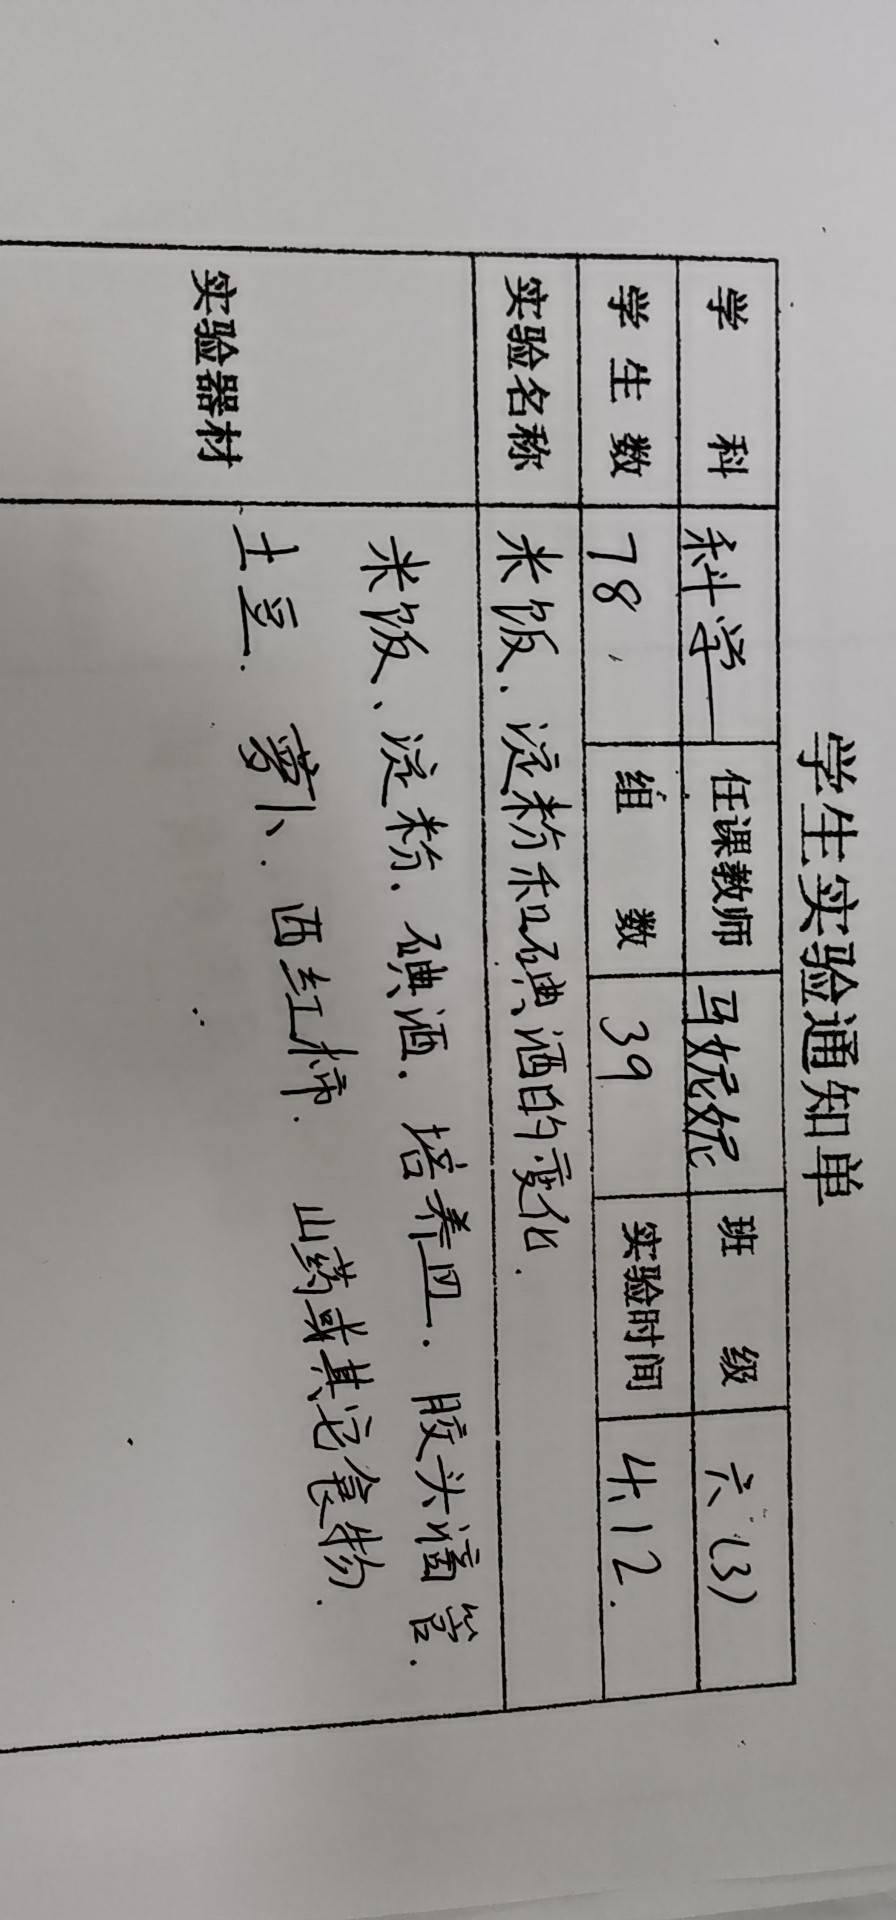 学生实验通知单
学 科 科学 任课教师 马妮妮 班 级 六(3)
学生数 78. 组 数 39 实验时间 4.12.
实验名称 米饭、淀粉和碘酒的变化.
实验器材 米饭、淀粉、碘酒. 培养皿. 胶头滴管.
土豆. 萝卜. 西红柿. 山药或其它食物.